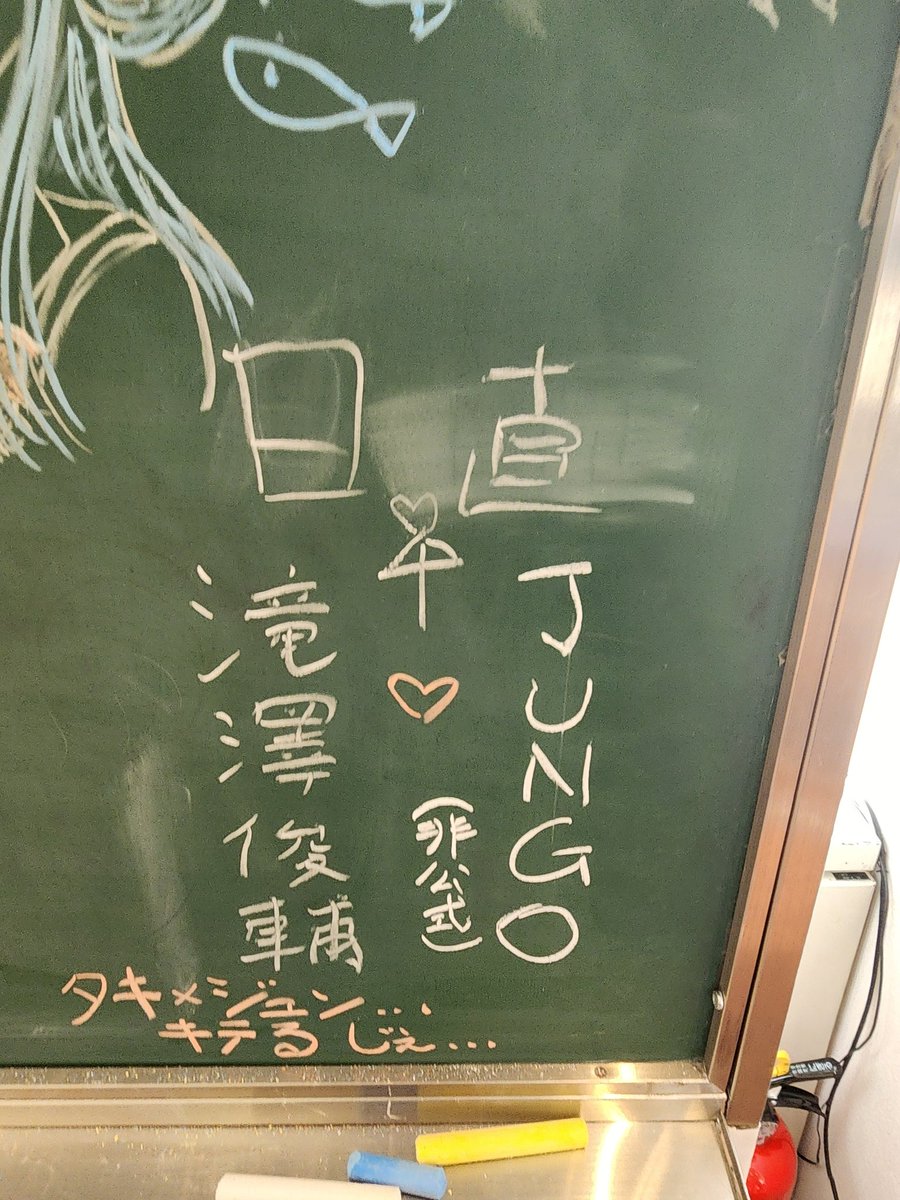 日直
JUNGO
(非公式)
滝澤俊輔
タキ×ジュン...
キテるじぇ...